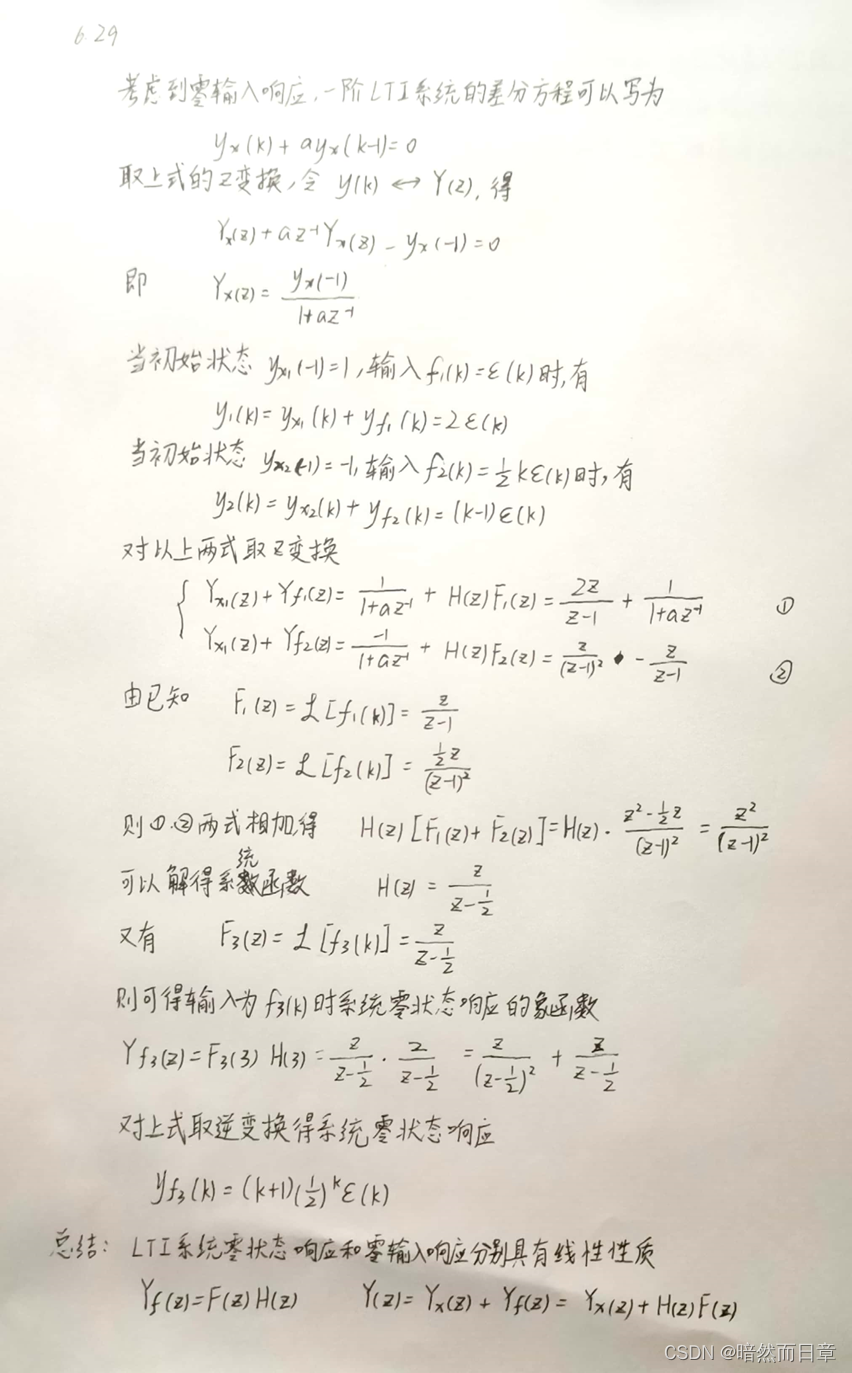 6.29
考虑到零输入响应,一阶LTI系统的差分方程可以写为
yₓ(k)+ayₓ(k-1)=0
取上式的Z变换,令 y(k) ↔ Y(z), 得
Yₓ(z)+az⁻¹Yₓ(z) - yₓ(-1)=0
即 Yₓ(z)= yₓ(-1)/(1+az⁻¹)
当初始状态 yₓ₁(-1)=1,输入f₁(k)=ε(k)时,有
y₁(k)=yₓ₁(k)+yf₁(k)=2ε(k)
当初始状态 yₓ₂(-1)=-1,输入f₂(k)=½kε(k)时,有
y₂(k)=yₓ₂(k)+yf₂(k)=(k-1)ε(k)
对以上两式取Z变换
{ Yₓ₁(z)+Yf₁(z)= 1/(1+az⁻¹) + H(z)F₁(z)= 2z/(z-1) + 1/(1+az⁻¹) ①
Yₓ₁(z)+Yf₂(z)= -1/(1+az⁻¹) + H(z)F₂(z)= z/(z-1)² - z/(z-1) ②
由已知 F₁(z)=ℒ[f₁(k)]= z/(z-1)
F₂(z)=ℒ[f₂(k)]= ½z/(z-1)²
则①.②两式相加,得 H(z)[F₁(z)+F₂(z)]=H(z)· (z²-½z)/(z-1)² = z²/(z-1)²
可以解得系统函数 H(z)= z/(z-½)
又有 F₃(z)=ℒ[f₃(k)]= z/(z-½)
则可得输入为f₃(k)时系统零状态响应的象函数
Yf₃(z)=F₃(3) H(3)= z/(z-½) · z/(z-½) = z/(z-½)² + z/(z-½)
对上式取逆变换得系统零状态响应
yf₃(k)=(k+1)(½)ᵏε(k)
总结: LTI系统零状态响应和零输入响应分别具有线性性质
Yf(z)=F(z)H(z) Y(z)=Yₓ(z)+Yf(z)= Yₓ(z)+H(z)F(z)
CSDN @暗然而日章